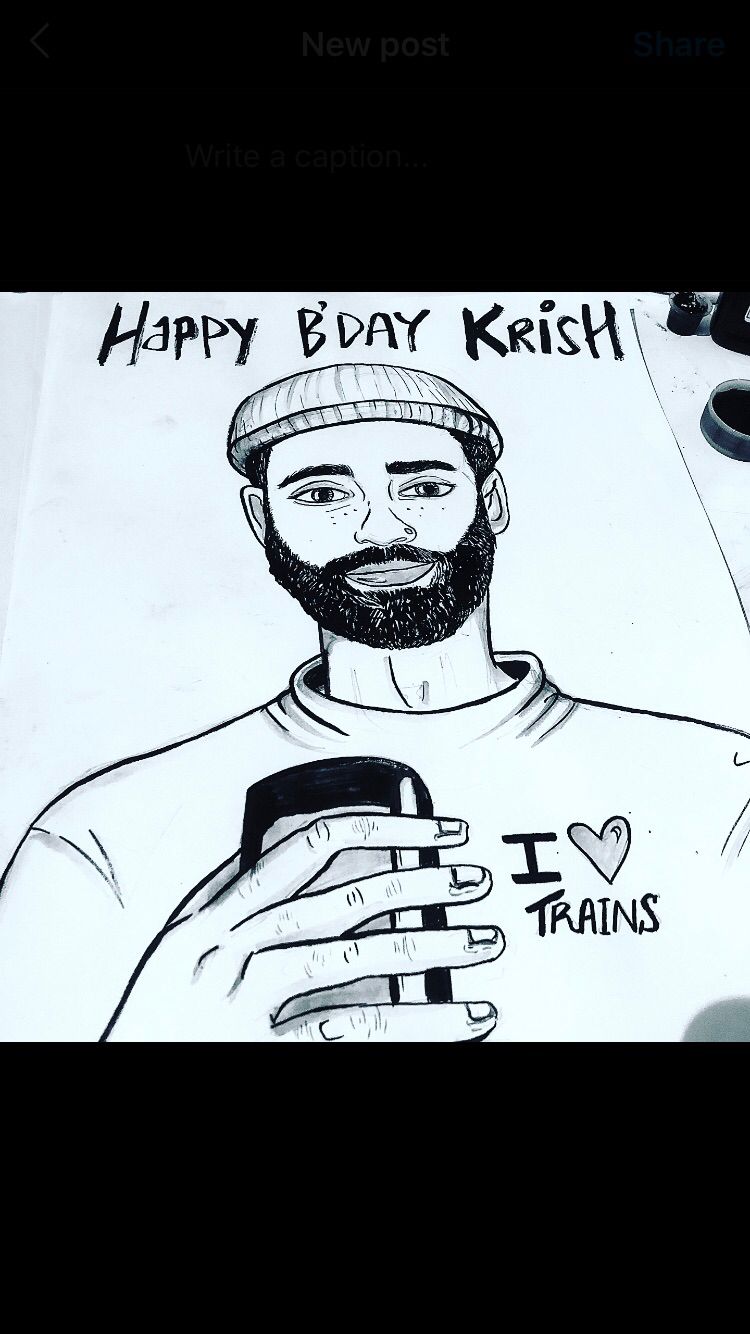 New post
Share
Write a caption...
HaPPY B'DAY KRisH
I ♥
TRAINS